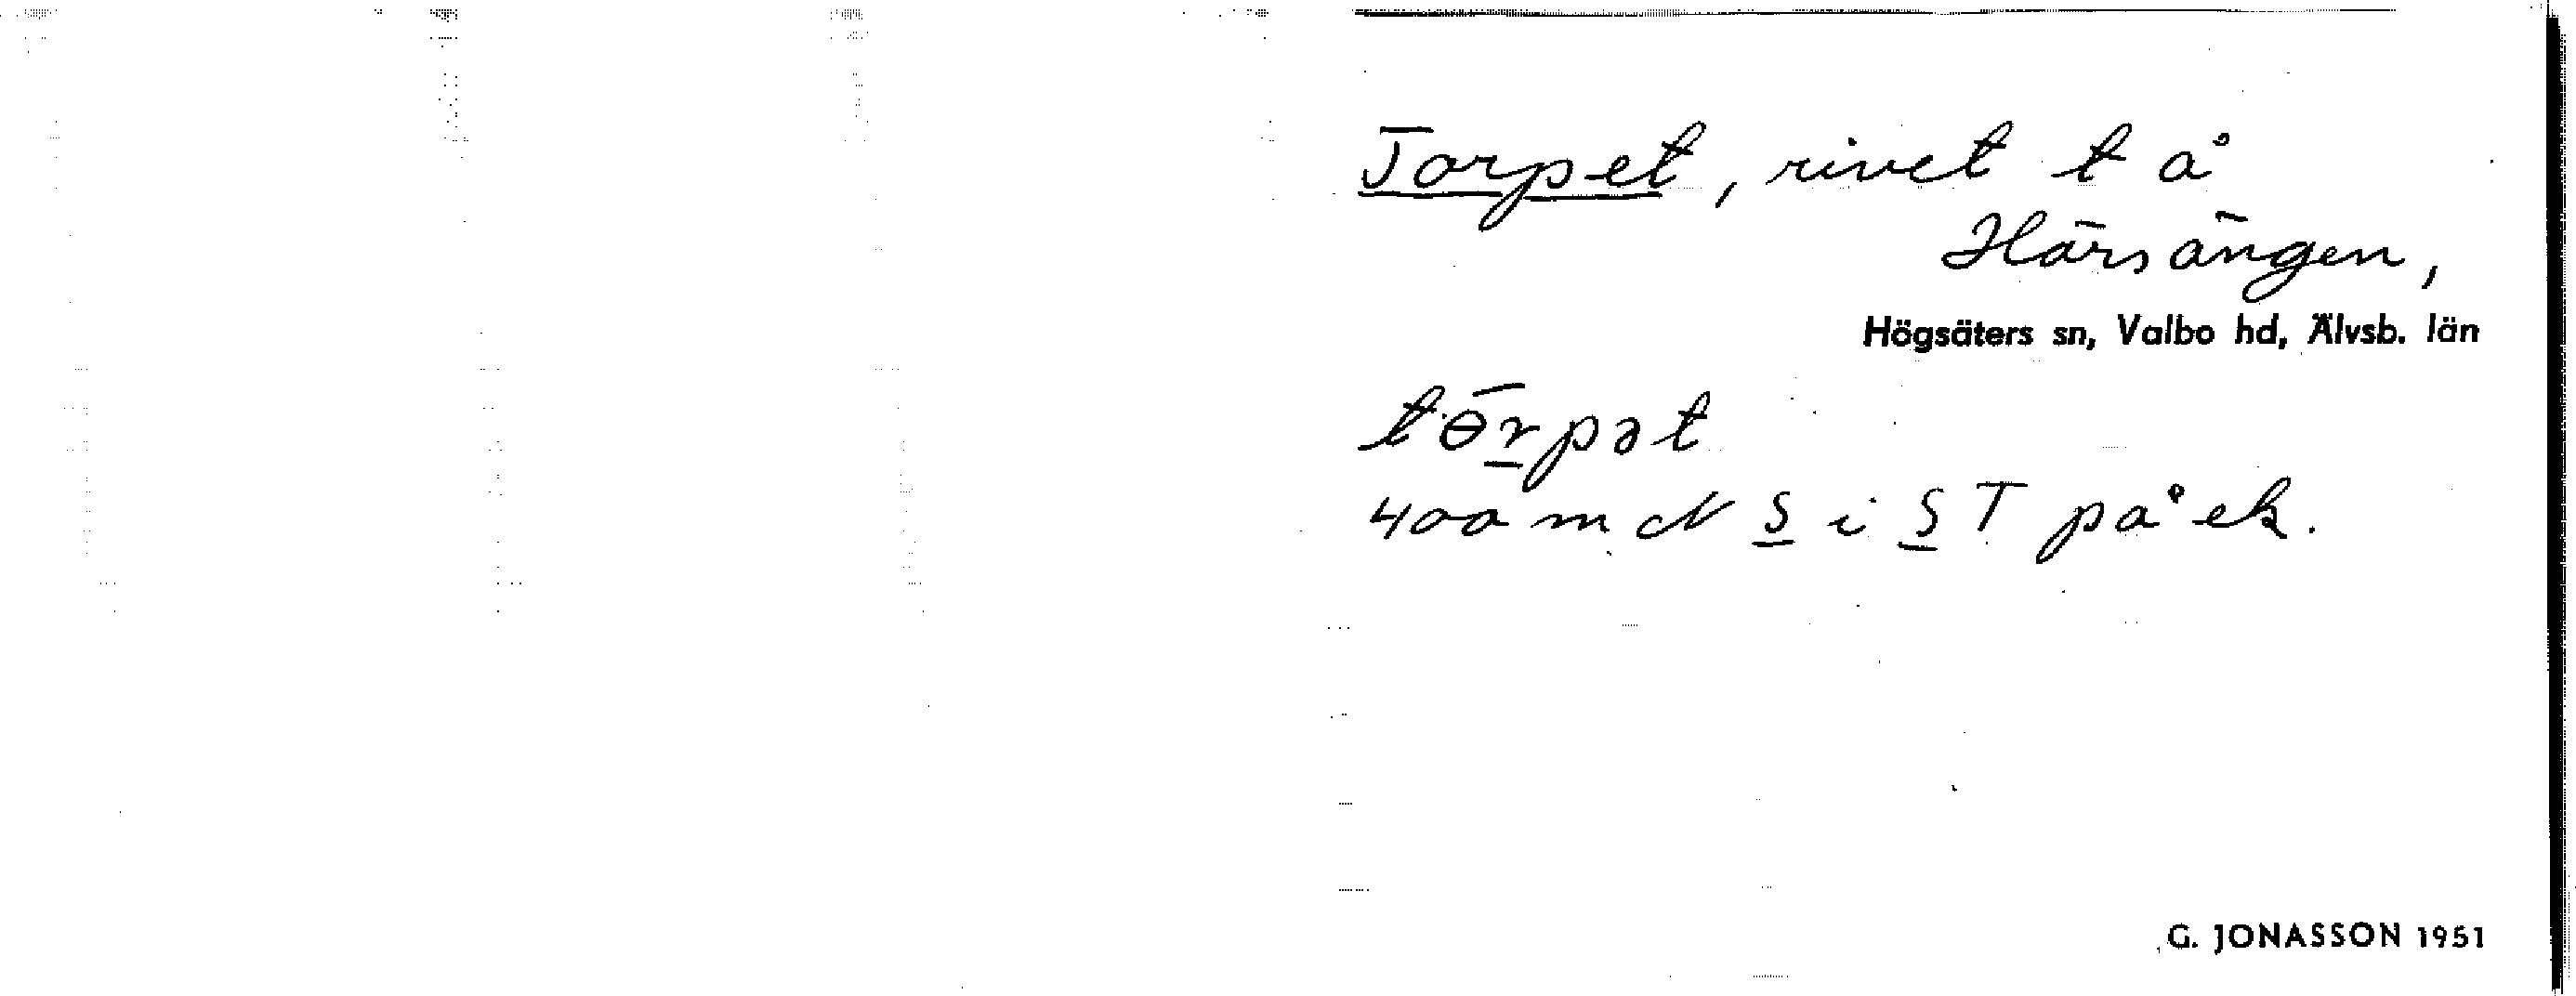 Torpet, rivet t å
Härsängen,
Högsäters sn, Valbo hd, Älvsb. län
tɵ́rpət
400 m N S i S T på ek.
G. JONASSON 1951